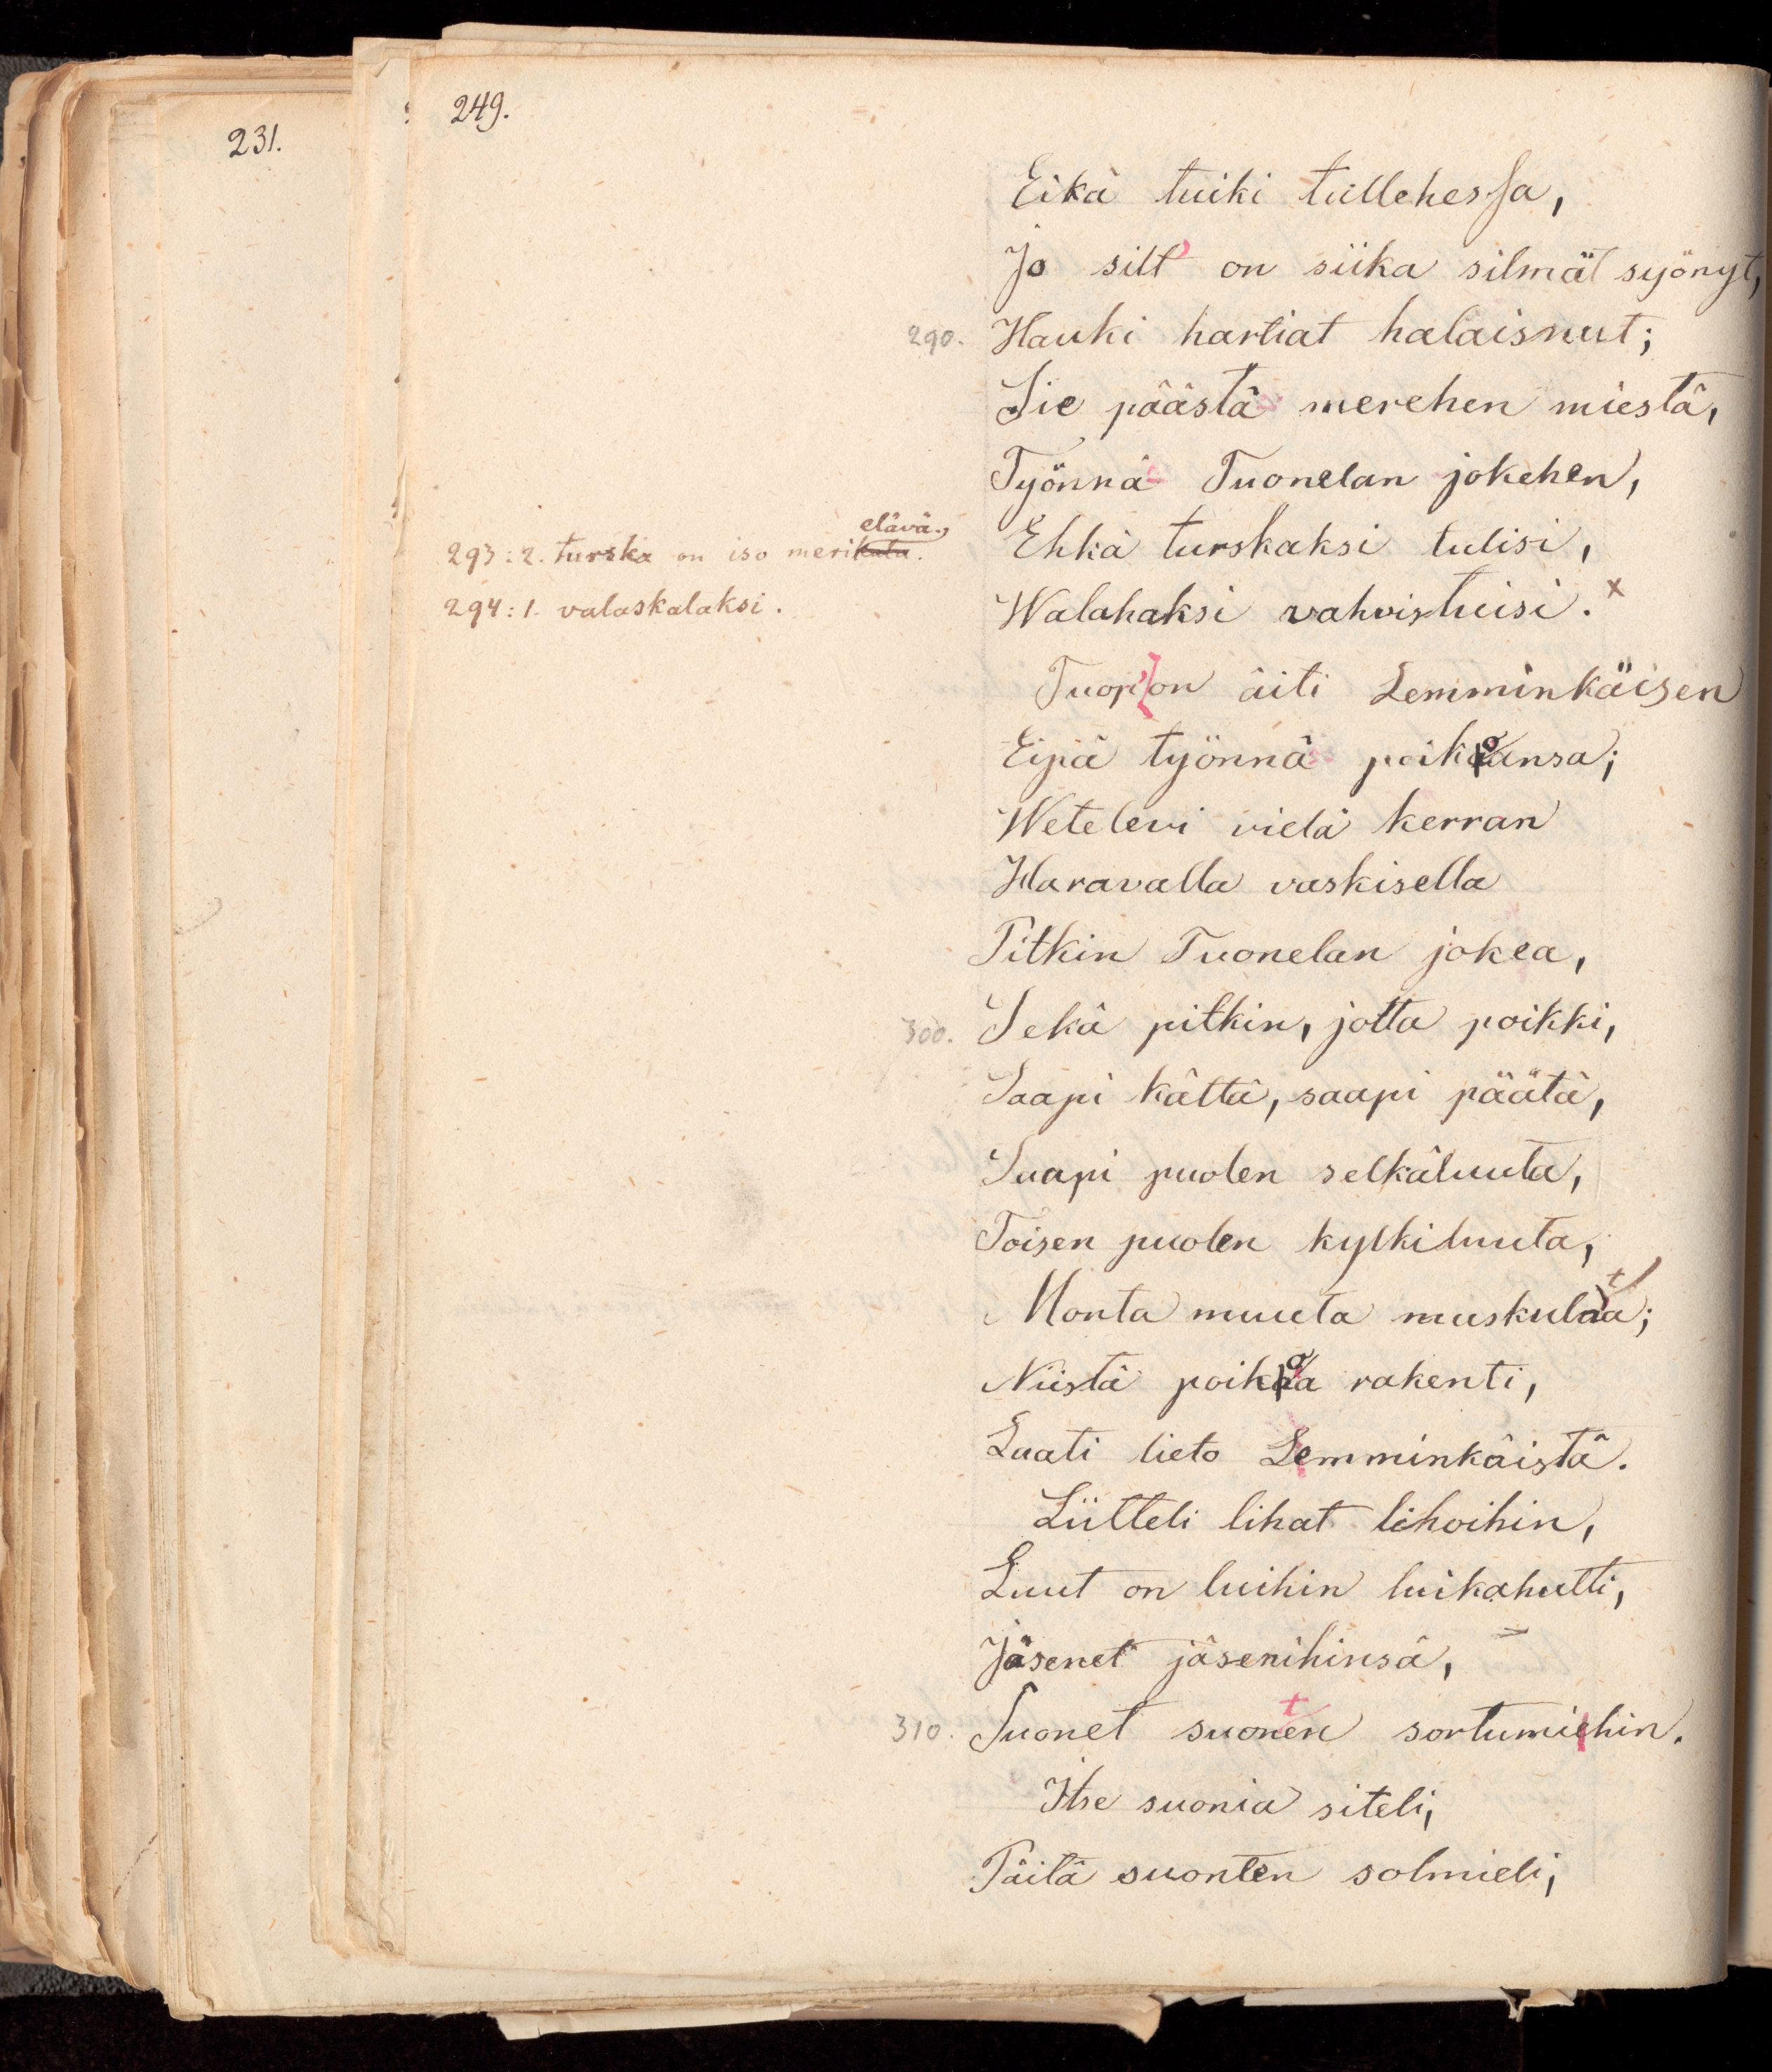 231.
249.
Eikä tuiki tullehessa,
Jo silt' on siika silmät syönyt,
290. Hauki hartiat halaisnut;
Sie päästä merehen miestä,
Työnnä Tuonelan jokehen,
elävä.,
293:2. turska on iso merikala. Ehkä turskaksi tulisi,
294:1. valaskalaksi. Walahaksi vahvistuisi. x
Tuop' on äiti Lemminkäisen
Eipä työnnä poikoansa;
Wetelevi vielä kerran
Haravalla vaskisella
Pitkin Tuonelan jokea,
300. Sekä pitkin, jotta poikki,
Saapi kättä, saapi päätä,
Saapi puolen selkäluuta,
Toisen puolen kylkiluuta,
Monta muuta muskulata;
Niistä poikoa rakenti,
Laati lieto Lemminkäistä.
Liitteli lihat lihoihin,
Luut on luihin luikahutti,
Jäsenet jäsenihinsä,
310. Suonet suonten sortumihin.
Itse suonia siteli,
Päitä suonten solmieli,